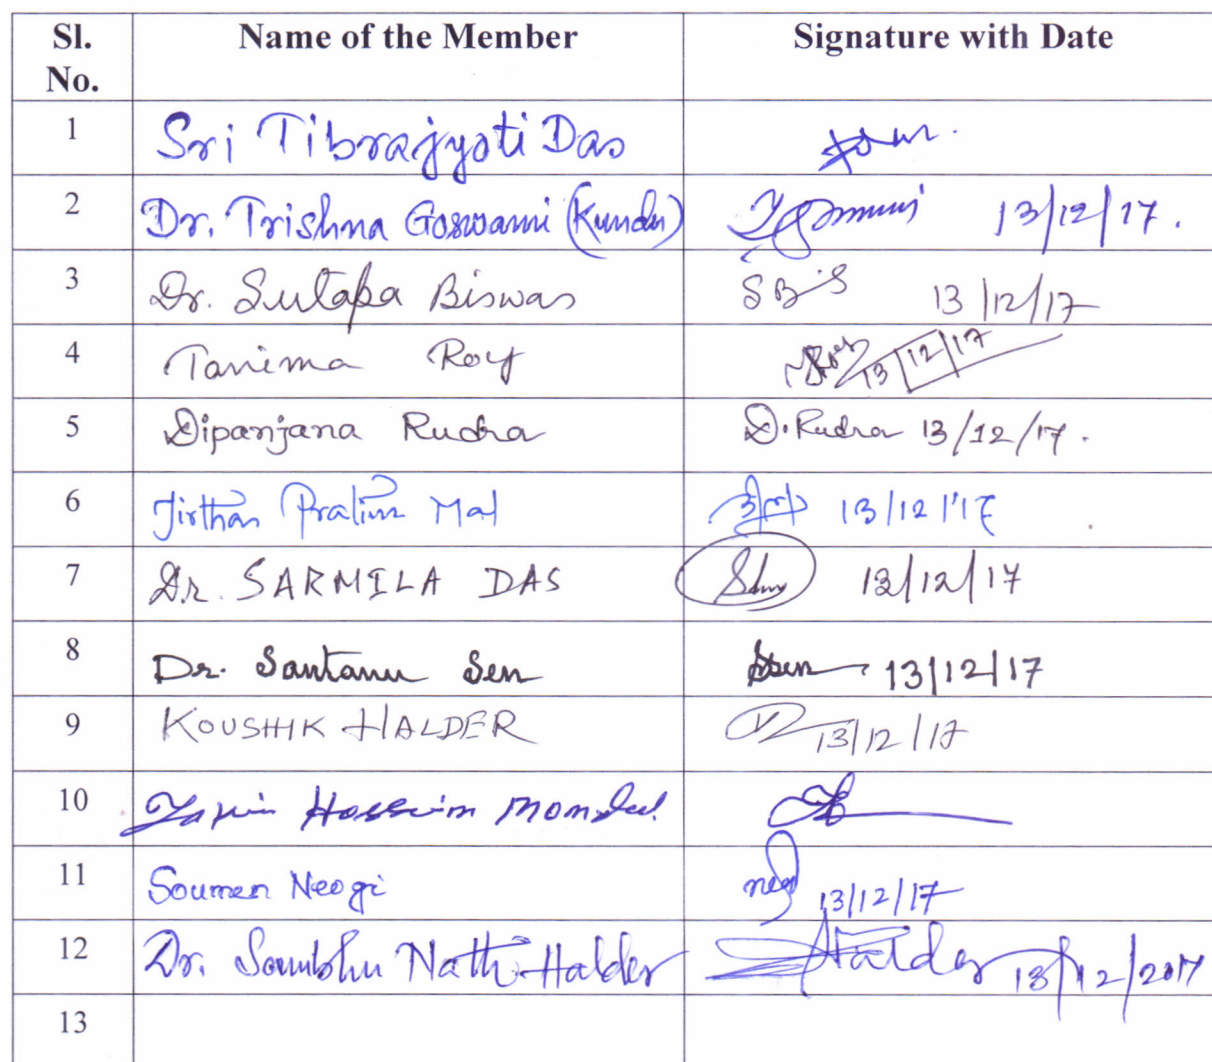 Sl. No. Name of the Member Signature with Date
1 Sri Tibrajyoti Das
2 Dr. Trishna Goswami (Kundu) 13/12/17.
3 Dr. Sutapa Biswas SBiS 13/12/17
4 Tanima Roy 13/12/17
5 Dipanjana Rudra D. Rudra 13/12/17.
6 Tirtha Pratim Mal 13/12/17
7 Dr. SARMILA DAS 13/12/17
8 Dr. Santanu Sen SSen 13/12/17
9 KOUSHIK HALDER 13/12/17
10 Hossain Mondal
11 Soumen Neogi 13/12/17
12 Dr. Sambhu Nath Halder Halder 13/12/2017
13